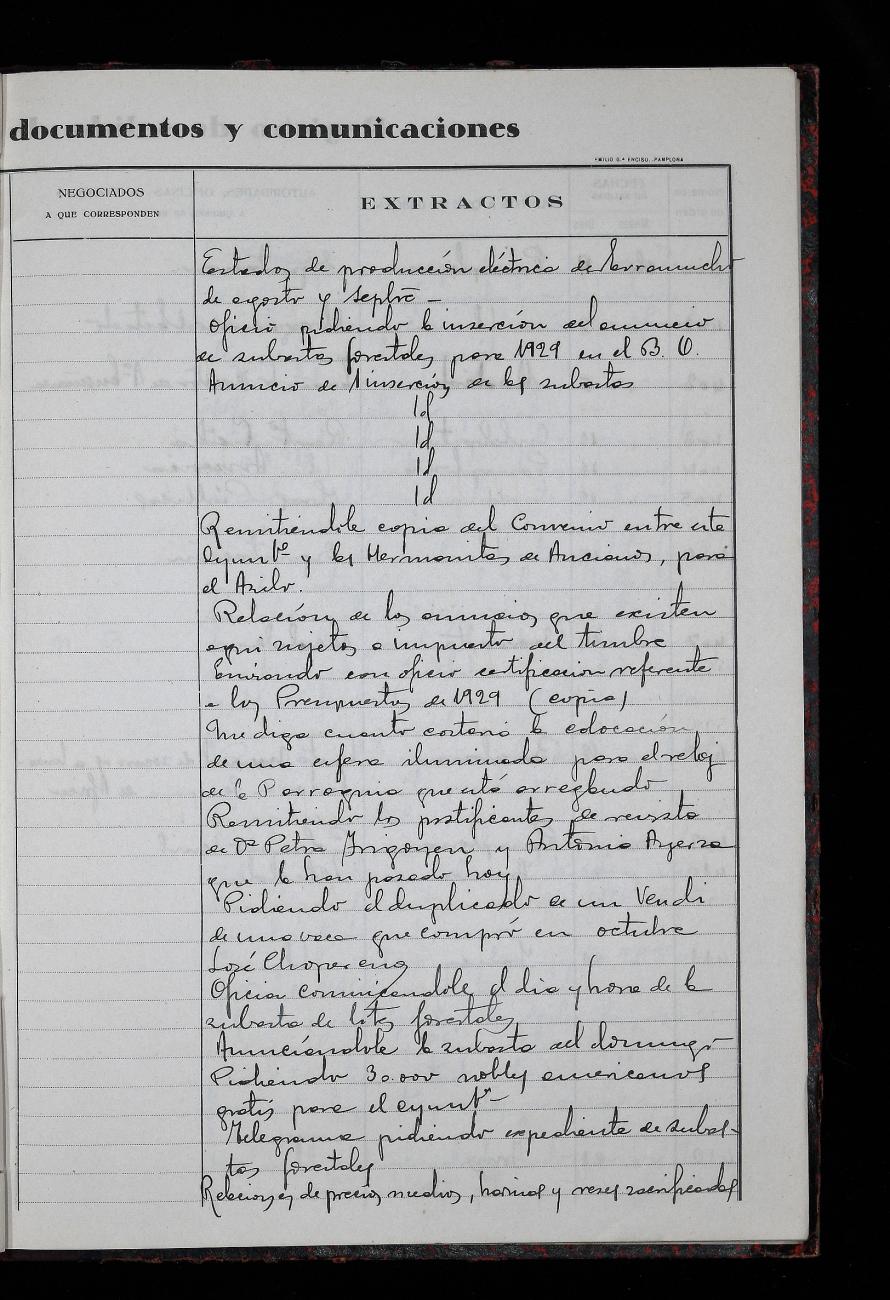 documentos y comunicaciones
EMILIO G.ª ENCISO.-PAMPLONA
NEGOCIADOS
A QUE CORRESPONDEN
EXTRACTOS
Estados de producción eléctrica de
de agosto y Septbre
Oficio pidiendo la inserción del anuncio
de subastas forestales para 1929 en el B. O.
Anuncio de inserción de las subastas
Id
Id
Id
Id
Remitiendole copia del Convenio entre este
Ayuntº y las Hermanitas de Ancianos, para
el Asilo.
Relación de los anuncios que existen
aqui sujetos a impuesto del timbre
Enviando con oficio certificacion referente
a los Presupuestos de 1929 (copia)
Me diga cuanto costaria la colocación
de una esfera iluminada para el reloj
de la Parroquia que está arreglando
Remitiendo los justificantes de revista
de Dª Petra Irigoyen y Antonia Ayerza
que la han pasado hoy
Pidiendo el duplicado de un Vendi
de una vaca que compró en octubre
José
Oficio comunicandole el dia y hora de la
subasta de lotes forestales
Anunciándole la subasta del domingo
Pidiendo 30.000 robles americanos
gratis para el ayuntº
Telegrama pidiendo expediente de subas-
tas forestales
Relaciones de precios medios, harinas y reses sacrificadas